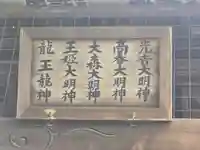 光春大明神
高春大明神
大森大明神
王姫大明神
龍王龍神